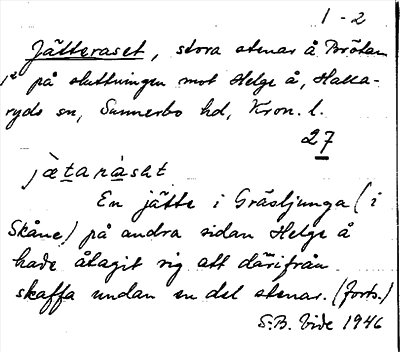 1-2
Jätteraset, stora stenar å Porötan
1⁴ på sluttningen mot Helge å, Halla-
ryds sn, Sunnerbo hd, Kron. l.
27
jætaràsat
En jätte i Gräsljunga (i
Skåne) på andra sidan Helge å
hade åtagit sig att därifrån
skaffa undan en del stenar. (forts.)
S.B. Vide 1946